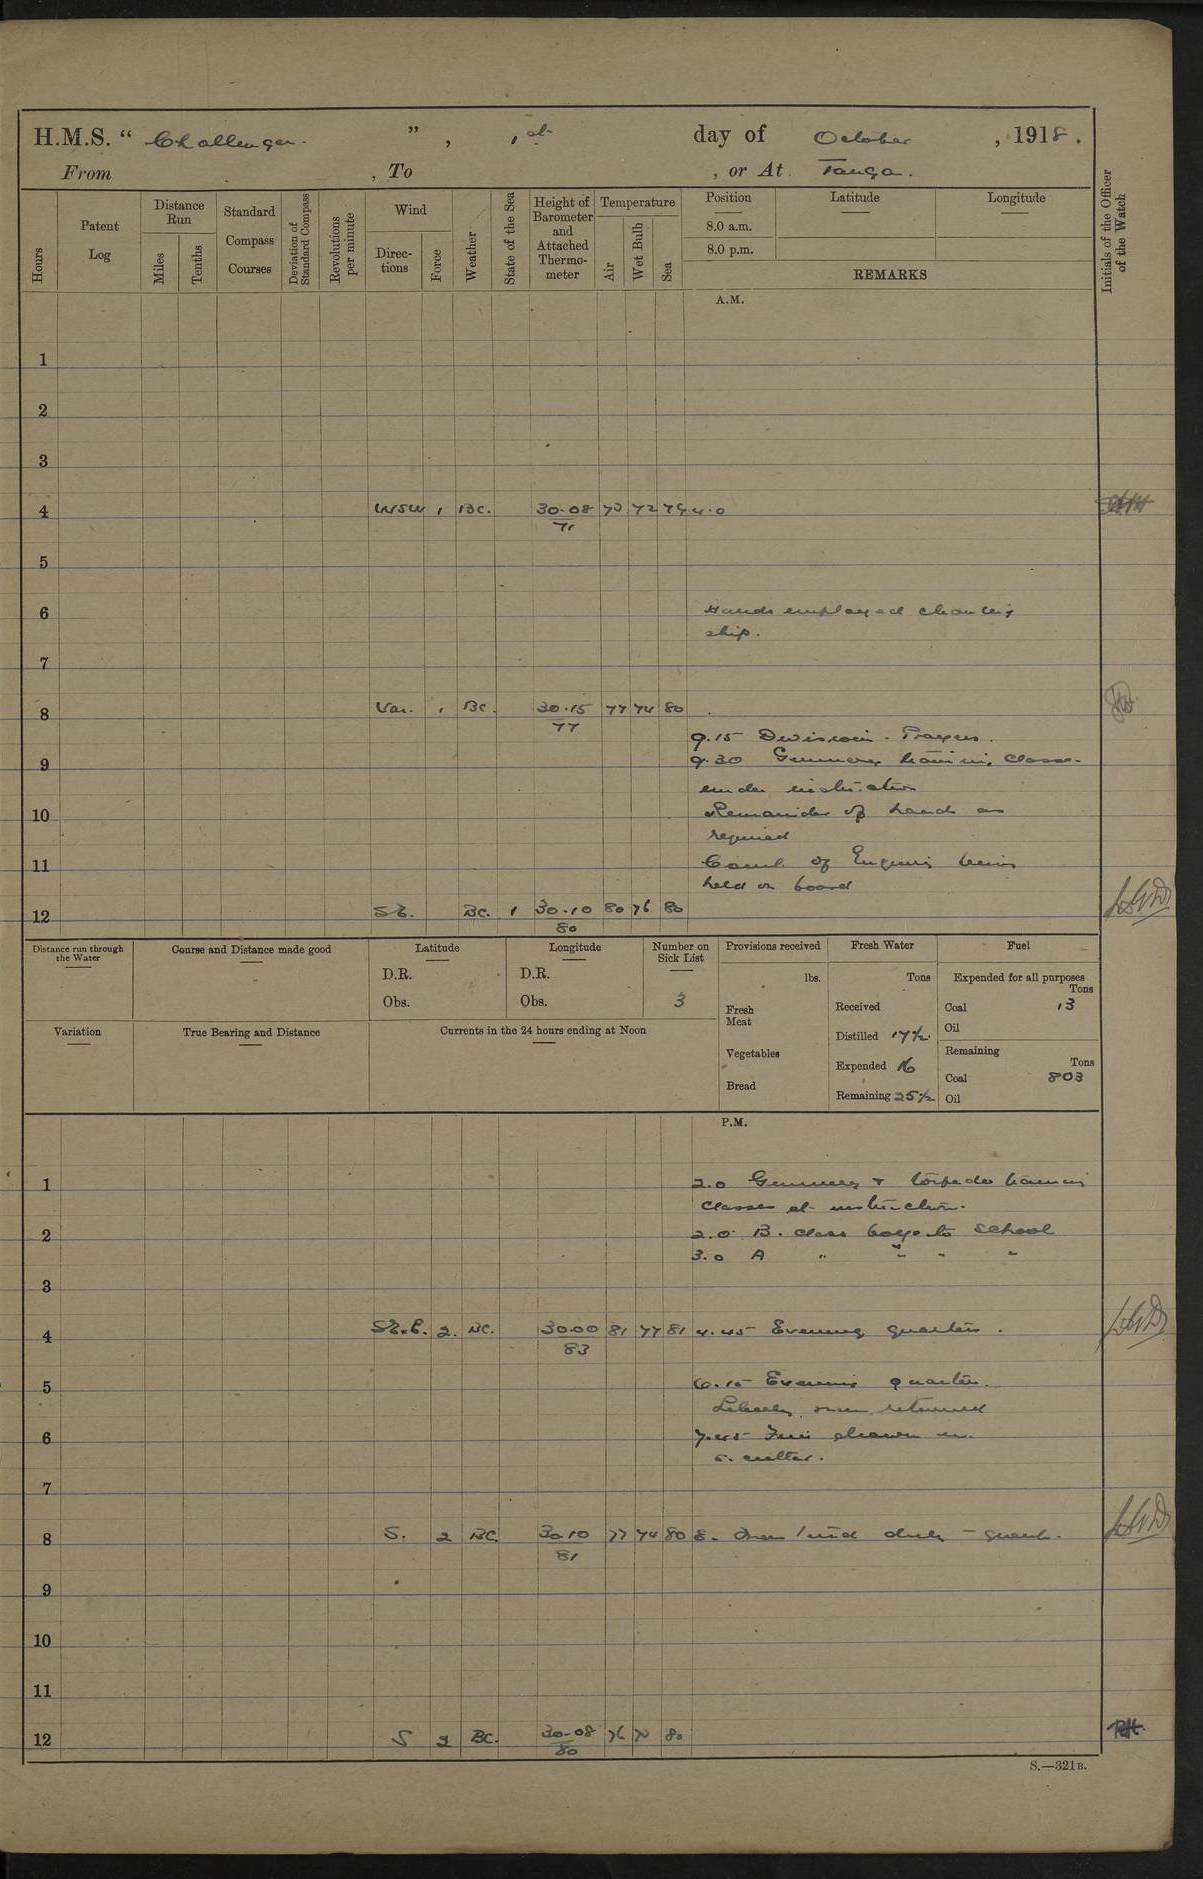 H.M.S. “ Challenger. ” , 1st day of October , 1918.
From , To , or At Tanga.
Hours
Patent Log
Distance Run
Miles
Tenths
Standard Compass Courses
Deviation of Standard Compass
Revolutions per minute
Wind
Directions
Force
Weather
State of the Sea
Height of Barometer and Attached Thermometer
Temperature
Air
Wet Bulb
Sea
Position
8.0 a.m.
8.0 p.m.
Latitude
Longitude
REMARKS
Initials of the Officer of the Watch
A.M.
1
2
3
4 WSW 1 BC. 30.08 73 72 79 4.0
71
5
6 Hands employed cleaning
ship.
7
8 Var. 1 BC. 30.15 77 74 80
77
9.15 Division - Prayers.
9 9.30 Gunnery training classes
under instruction
10 Remainder of hands as
required
11 Court of Enquiry being
held on board
12 SE. BC. 1 30.10 80 76 80
80
Distance run through the Water
Course and Distance made good
Latitude
D.R.
Obs.
Longitude
D.R.
Obs.
Number on Sick List
3
Provisions received
lbs.
Fresh Meat
Vegetables
Bread
Fresh Water
Tons
Received
Distilled 17½
Expended 16
Remaining 25½
Fuel
Expended for all purposes
Tons
Coal 13
Oil
Remaining
Tons
Coal 803
Oil
Variation
True Bearing and Distance
Currents in the 24 hours ending at Noon
P.M.
1 2.0 Gunnery & torpedo training
classes at instruction.
2 2.0 B. class boys to School
3.0 A " " " "
3
4 SE.E. 2. BC. 30.00 81 77 81 4.45 Evening quarters.
83
5 6.15 Evening quarters.
Liberty men returned
6 7.45 Fires drawn in
s. cutter.
7
8 S. 2 BC. 30.10 77 74 80 8. duty - guard.
81
9
10
11
12 S 2 BC. 30.08 76 70 80
80
S.—321B.